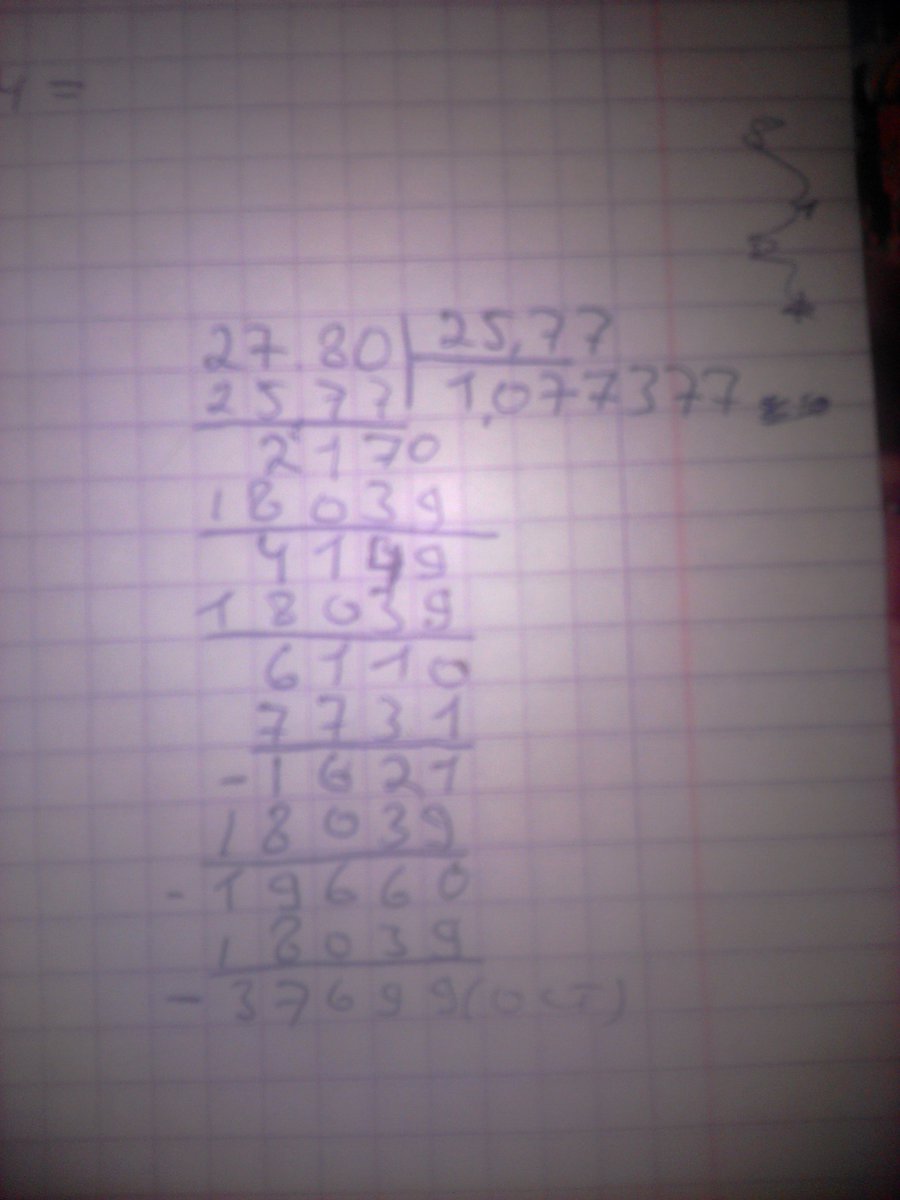 4 =
27.80 25,77
25 77 1,077377
2170
18039
4149
18039
6110
7731
-1621
18039
-19660
18039
-37699(ОСТ)